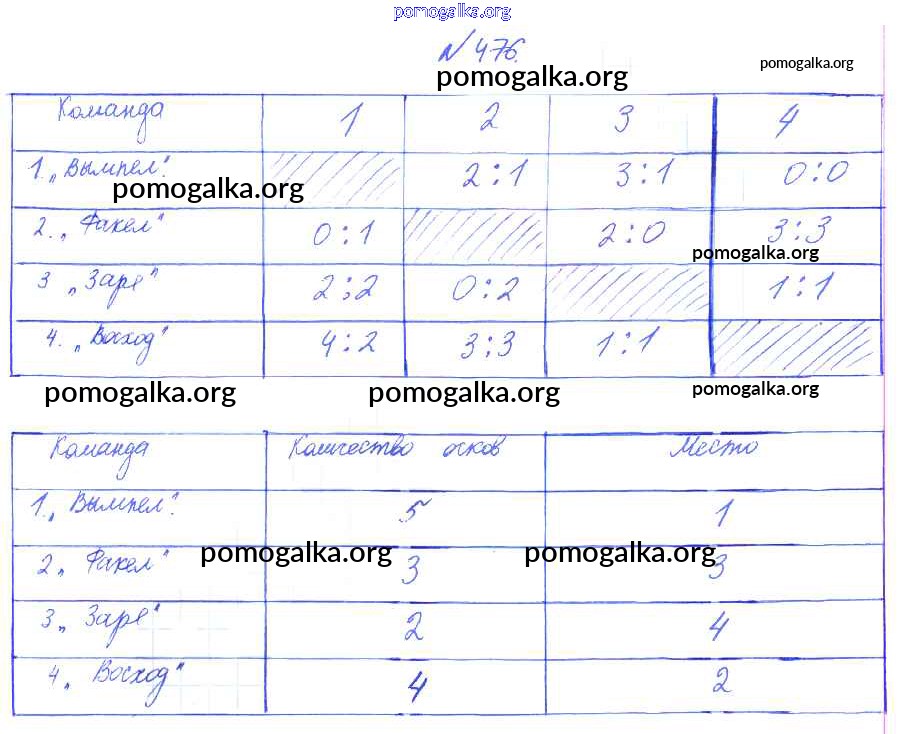 pomogalka.org
№ 476.
pomogalka.org
pomogalka.org
Команда 1 2 3 4
1. „Вымпел". 2:1 3:1 0:0
pomogalka.org
2. „Факел" 0:1 2:0 3:3
pomogalka.org
3 „Заре" 2:2 0:2 1:1
4. „Восход" 4:2 3:3 1:1
pomogalka.org pomogalka.org pomogalka.org
Команда Количество осков Место
1. „Вымпел". 5 1
2 „Факел" 3 3
pomogalka.org pomogalka.org
3 „Заре" 2 4
4 „Восход" 4 2